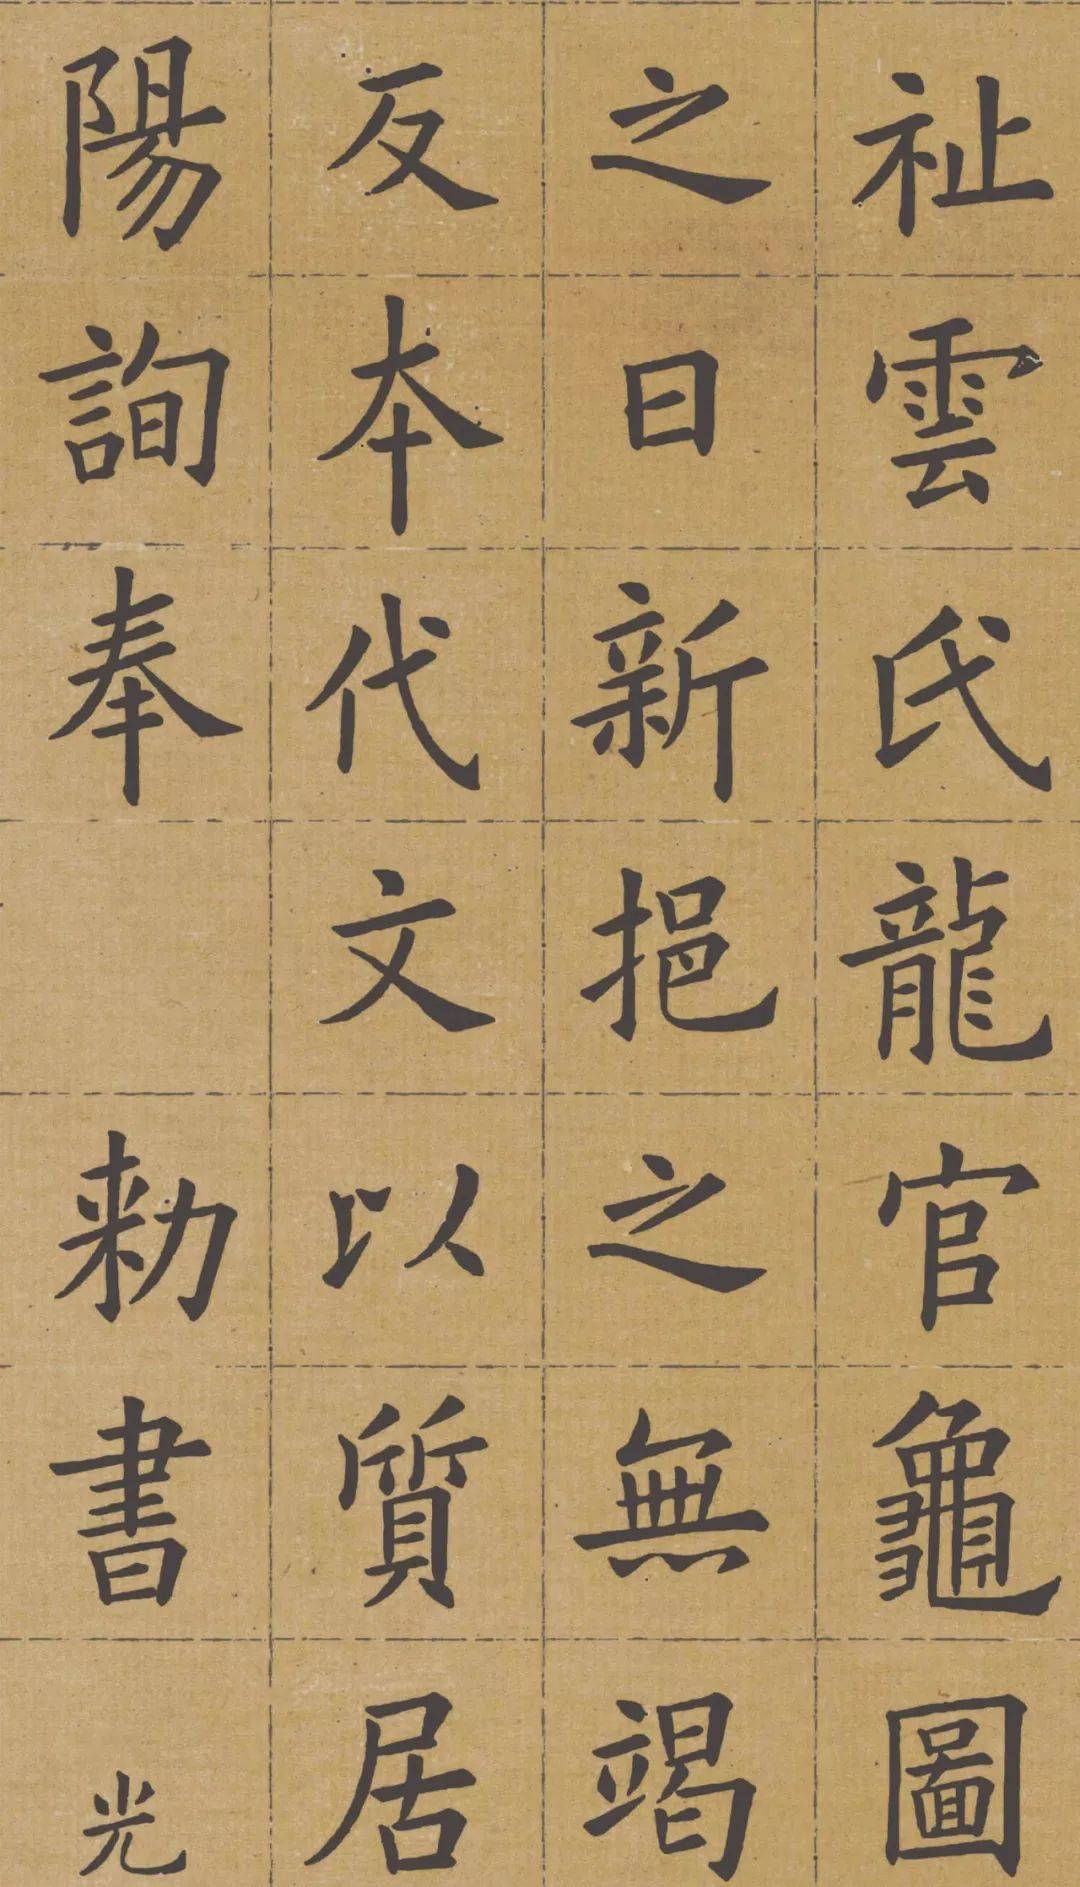 祉雲氏龍官龜圖
之日新挹之無竭
反本代文以質居
陽詢奉勑書光